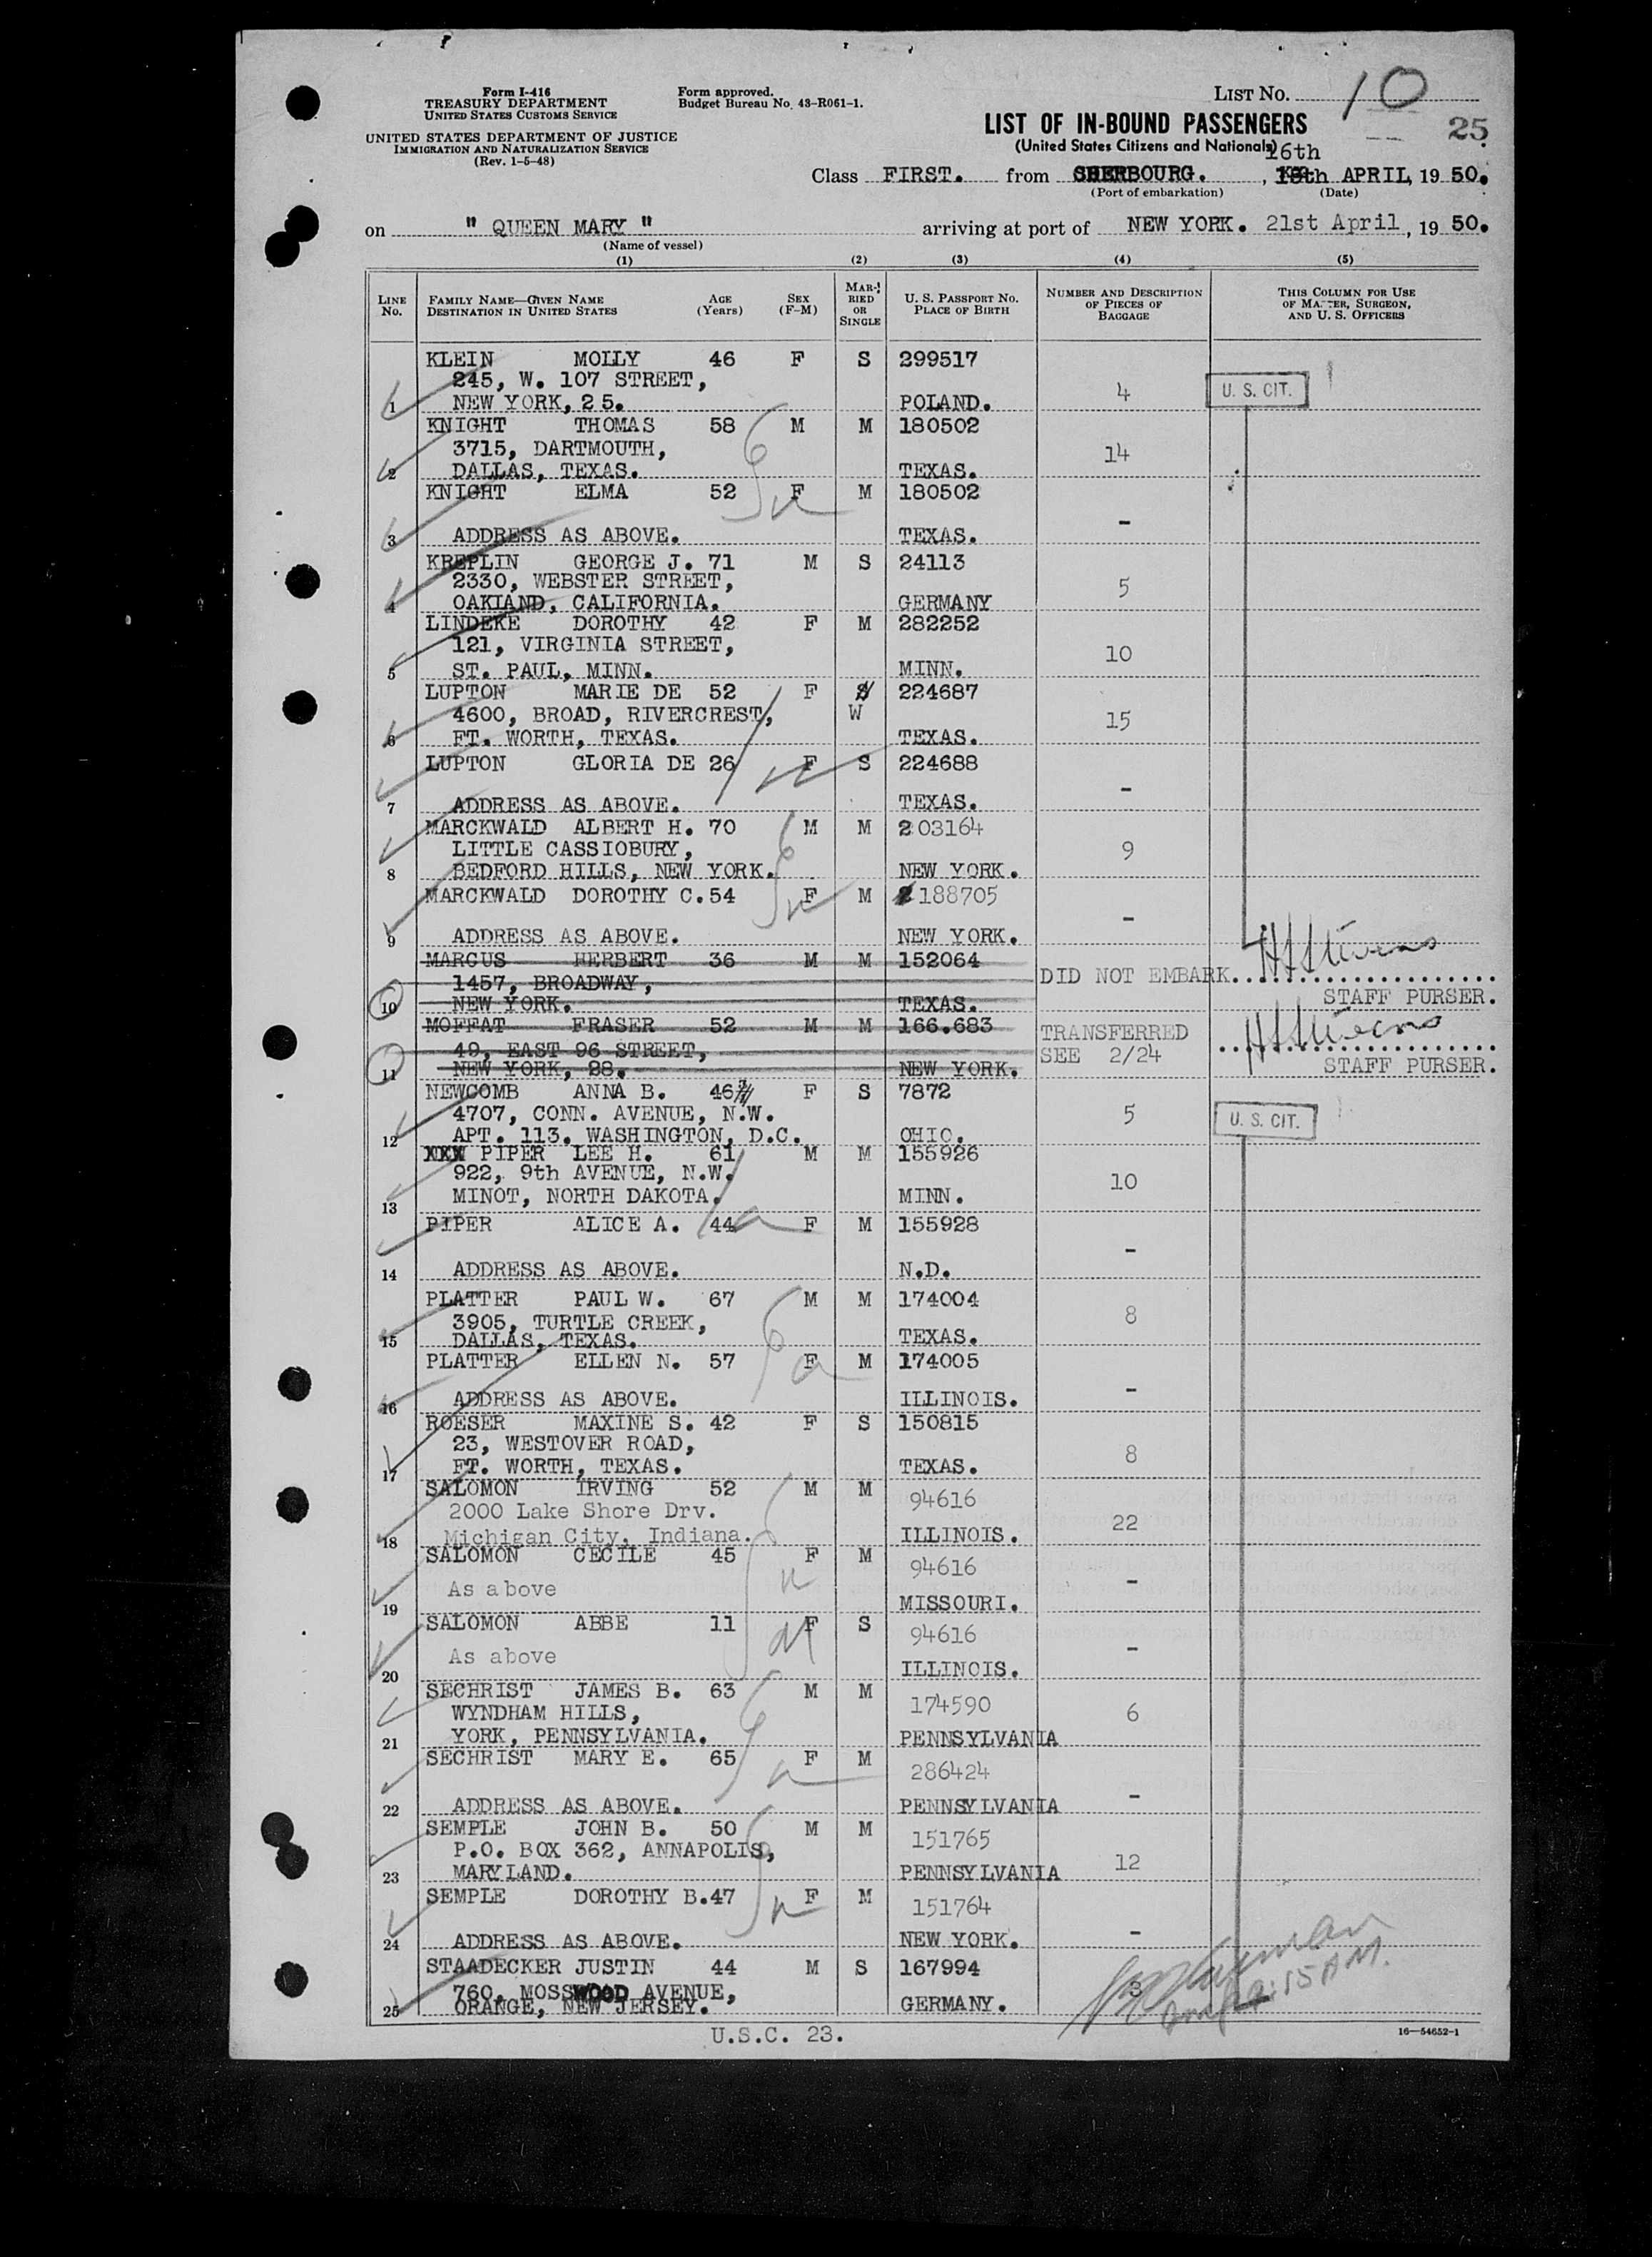 Form I-416
TREASURY DEPARTMENT
UNITED STATES CUSTOMS SERVICE
UNITED STATES DEPARTMENT OF JUSTICE
IMMIGRATION AND NATURALIZATION SERVICE
(Rev. 1-5-48)
Form approved.
Budget Bureau No. 43-R061-1.
LIST NO. 10
25
LIST OF IN-BOUND PASSENGERS
(United States Citizens and Nationals)
16th
Class FIRST. from CHERBOURG. , 15th APRIL, 19 50.
(Port of embarkation) (Date)
on " QUEEN MARY " arriving at port of NEW YORK. 21st April, 19 50.
(Name of vessel)
(1) (2) (3) (4) (5)
LINE NO. FAMILY NAME—GIVEN NAME DESTINATION IN UNITED STATES AGE (Years) SEX (F-M) MARRIED OR SINGLE U. S. PASSPORT NO. PLACE OF BIRTH NUMBER AND DESCRIPTION OF PIECES OF BAGGAGE THIS COLUMN FOR USE OF MASTER, SURGEON, AND U. S. OFFICERS
KLEIN MOLLY 46 F S 299517
245, W. 107 STREET, 4 U. S. CIT.
1 NEW YORK, 25. POLAND.
KNIGHT THOMAS 58 M M 180502
3715, DARTMOUTH, 14
2 DALLAS, TEXAS. TEXAS.
KNIGHT ELMA 52 F M 180502
-
3 ADDRESS AS ABOVE. TEXAS.
KREPLIN GEORGE J. 71 M S 24113
2330, WEBSTER STREET, 5
4 OAKLAND, CALIFORNIA. GERMANY
LINDEKE DOROTHY 42 F M 282252
121, VIRGINIA STREET, 10
5 ST. PAUL, MINN. MINN.
LUPTON MARIE DE 52 F S 224687
4600, BROAD, RIVERCREST, W 15
6 FT. WORTH, TEXAS. TEXAS.
LUPTON GLORIA DE 26 F S 224688
-
7 ADDRESS AS ABOVE. TEXAS.
MARCKWALD ALBERT H. 70 M M 203164
LITTLE CASSIOBURY, 9
8 BEDFORD HILLS, NEW YORK. NEW YORK.
MARCKWALD DOROTHY C. 54 F M 188705
-
9 ADDRESS AS ABOVE. NEW YORK.
MARCUS HERBERT 36 M M 152064
1457, BROADWAY, DID NOT EMBARK. H Stevens
10 NEW YORK. TEXAS. STAFF PURSER.
MOFFAT FRASER 52 M M 166.683 TRANSFERRED H Stevens
49, EAST 96 STREET, SEE 2/24
11 NEW YORK, 28. NEW YORK. STAFF PURSER.
NEWCOMB ANNA B. 46 F S 7872
4707, CONN. AVENUE, N.W. 5 U. S. CIT.
12 APT. 113. WASHINGTON, D.C. OHIO.
PIPER LEE H. 61 M M 155926
922, 9th AVENUE, N.W. 10
13 MINOT, NORTH DAKOTA. MINN.
PIPER ALICE A. 44 F M 155928
-
14 ADDRESS AS ABOVE. N.D.
PLATTER PAUL W. 67 M M 174004
3905, TURTLE CREEK, 8
15 DALLAS, TEXAS. TEXAS.
PLATTER ELLEN N. 57 F M 174005
-
16 ADDRESS AS ABOVE. ILLINOIS.
ROESER MAXINE S. 42 F S 150815
23, WESTOVER ROAD, 8
17 FT. WORTH, TEXAS. TEXAS.
SALOMON IRVING 52 M M 94616
2000 Lake Shore Drv. 22
18 Michigan City, Indiana. ILLINOIS.
SALOMON CECILE 45 F M 94616
As above -
19 MISSOURI.
SALOMON ABBE 11 F S 94616
As above -
20 ILLINOIS.
SECHRIST JAMES B. 63 M M 174590
WYNDHAM HILLS, 6
21 YORK, PENNSYLVANIA. PENNSYLVANIA
SECHRIST MARY E. 65 F M 286424
-
22 ADDRESS AS ABOVE. PENNSYLVANIA
SEMPLE JOHN B. 50 M M 151765
P.O. BOX 362, ANNAPOLIS, 12
23 MARYLAND. PENNSYLVANIA
SEMPLE DOROTHY B. 47 F M 151764
-
24 ADDRESS AS ABOVE. NEW YORK.
STAADECKER JUSTIN 44 M S 167994
760, MOSSWOOD AVENUE, 3
25 ORANGE, NEW JERSEY. GERMANY.
U.S.C. 23.
16—54652-1